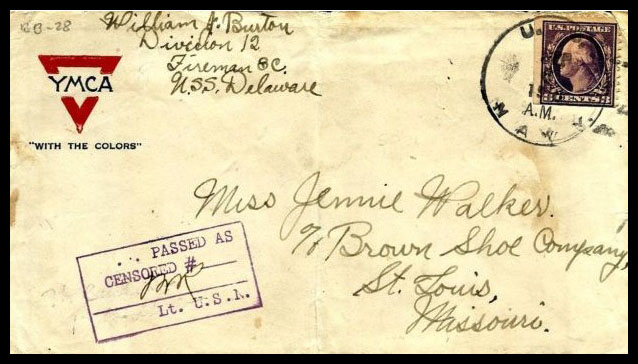 BB-28
William J. Burton
Division 12
Fireman 3C.
U.S.S. Delaware
YMCA
"WITH THE COLORS"
U.S. POSTAGE
3 CENTS 3
U.
19
A.M.
NAV
Miss Jennie Walker.
% Brown Shoe Company,
St. Louis,
Missouri.
... PASSED AS
CENSORED #
Lt. U.S.N.